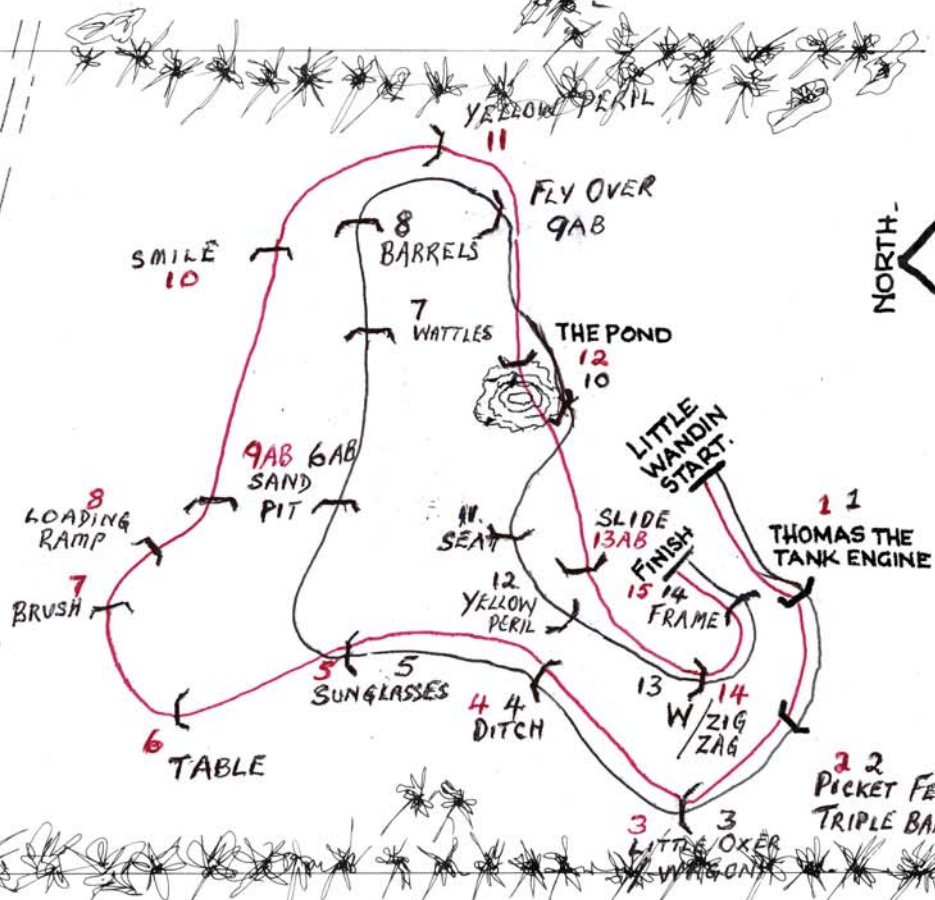 YELLOW PERIL
11
FLY OVER
9AB
SMILE
10
8
BARRELS
NORTH.
7
WATTLES
THE POND
12
10
LITTLE
WANDIN
START.
9AB 6AB
SAND
PIT
8
LOADING
RAMP
11.
SEAT
SLIDE
13AB
FINISH
1 1
THOMAS THE
TANK ENGINE
7
BRUSH
12
YELLOW
PERIL
15 14
FRAME
5 5
SUNGLASSES
13 14
W/ZIG
ZAG
4 4
DITCH
6
TABLE
2 2
PICKET FE
TRIPLE BA
3 3
LITTLE OXER
WAGON